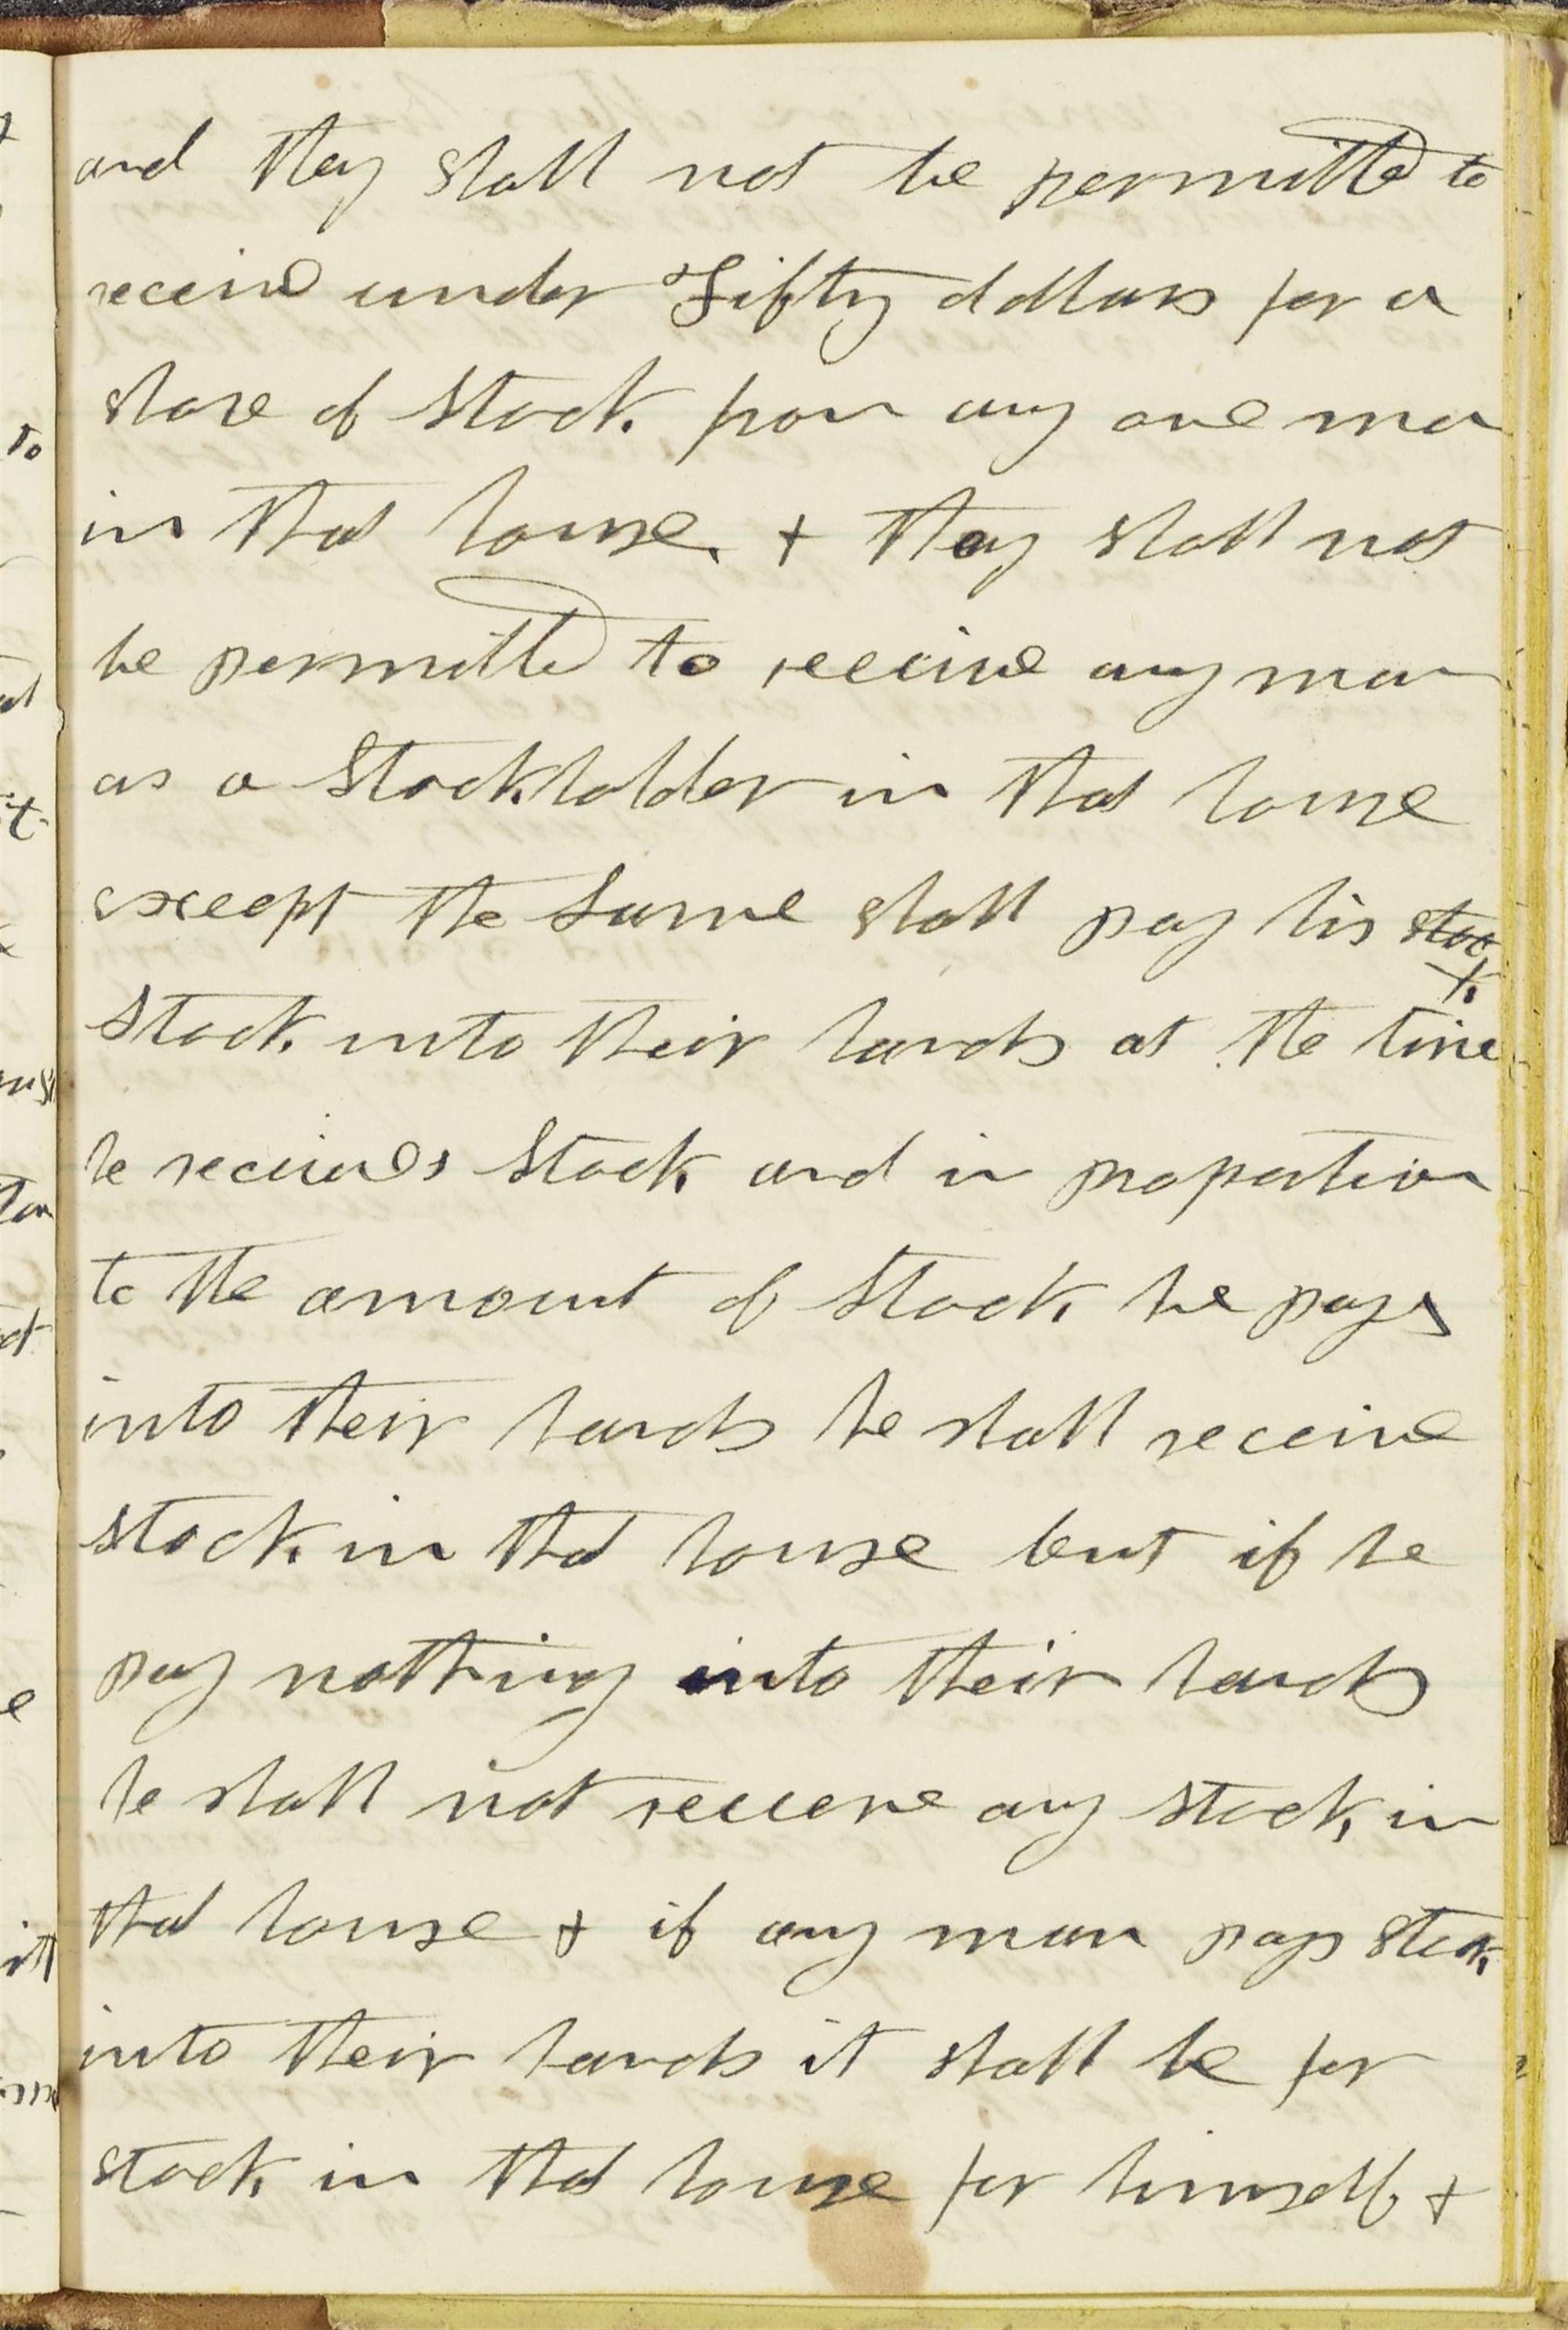 and they shall not be permitted to
receive under Fifty dollars for a
share of stock from any one man
in that house, + they shall not
be permitted to receive any man
as a Stockholder in that house
except the Same shall pay his stock
stock into their hands at the time
he receives Stock and in proportion
to the amount of Stock he pays
into their hands he shall receive
stock in that house but if he
pay nothing into their hands
he shall not receive any stock in
that house + if any man pays stock
into their hands it shall be for
stock in that house for himself +